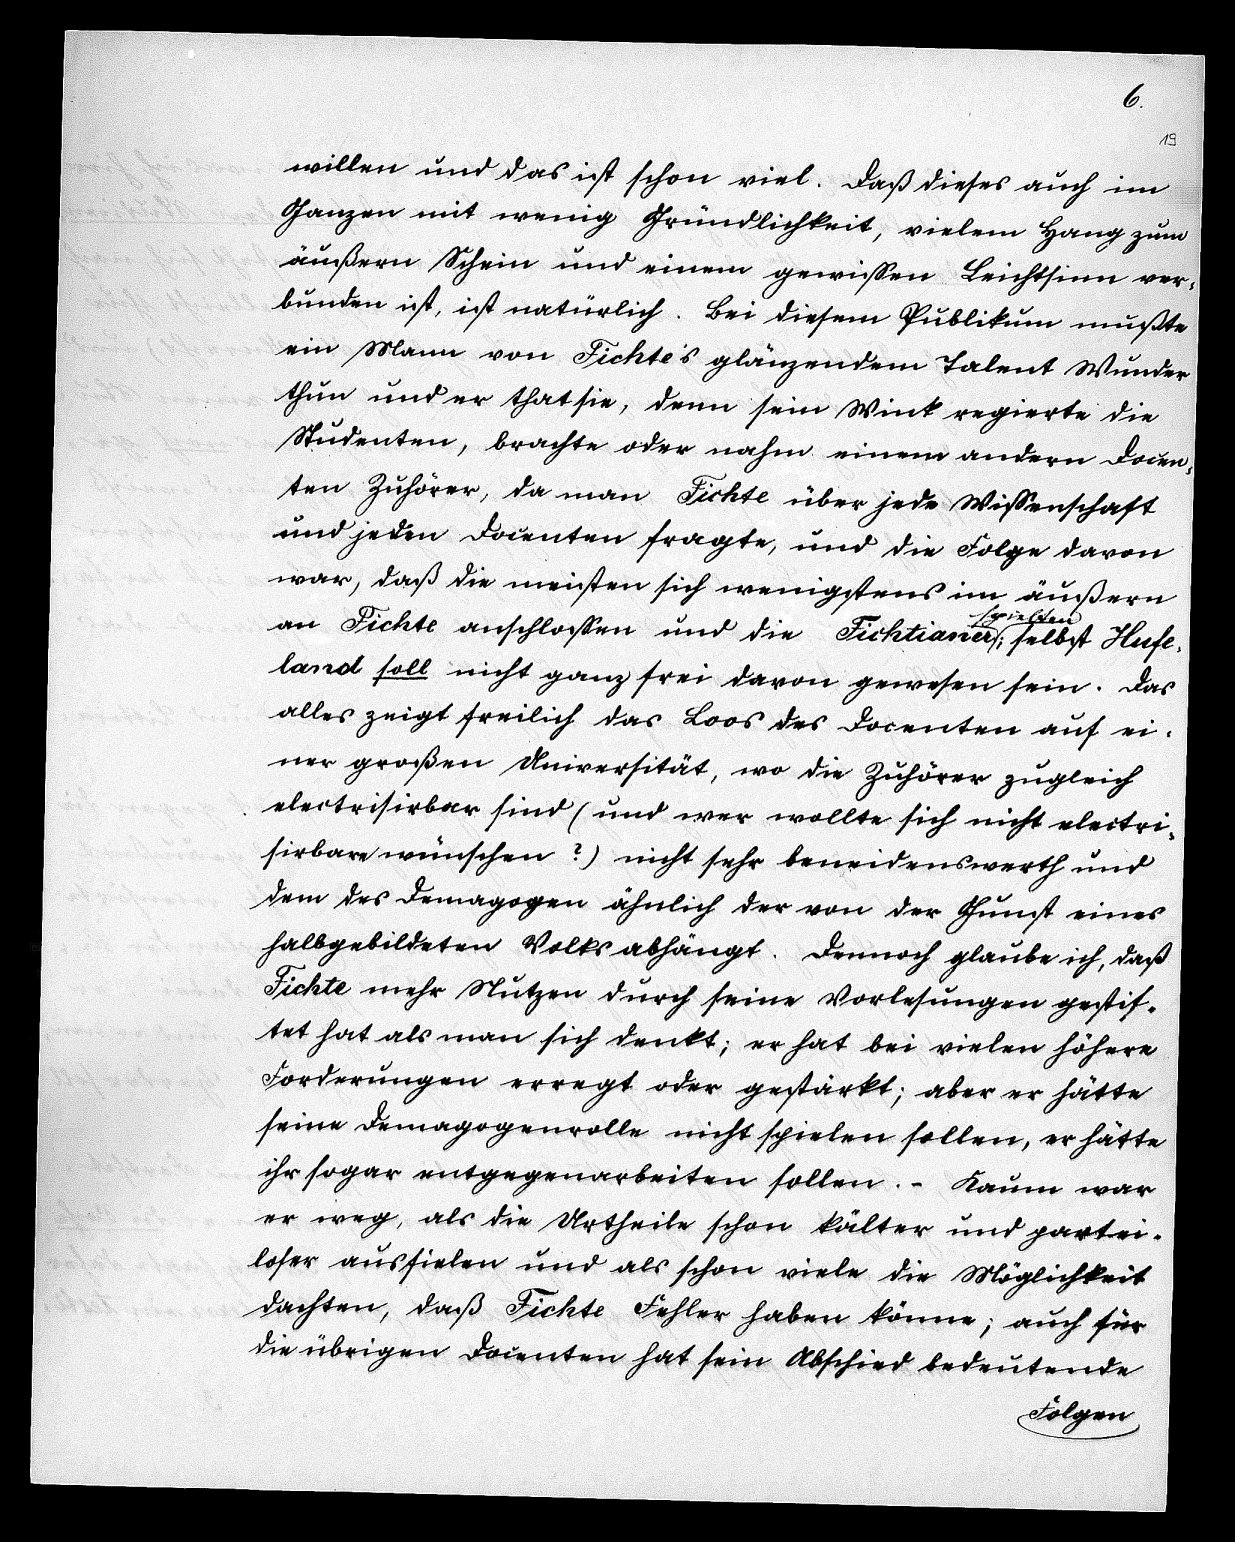 6.
19
willen und das ist schon viel. Daß dieses auch im
Ganzen mit wenig Gründlichkeit, vielem Hang zum
äußern Schein und einem gewissen Leichtsinn ver-
bunden ist, ist natürlich. Bei diesem Publikum mußte
ein Mann von Fichte's glänzendem Talent Wunder
thun und er that sie, denn sein Wink regierte die
Studenten, brachte oder nahm einem andern Docen-
ten Zuhörer, da man Fichte über jede Wissenschaft
und jeden Docenten fragte, und die Folge davon
war, daß die meisten sich wenigstens im äußern
spielten
an Fichte anschlossen und die Fichtianer; selbst Hufe-
land soll nicht ganz frei davon gewesen sein. Das
alles zeigt freilich das Loos des Docenten auf ei-
ner großen Universität, wo die Zuhörer zugleich
electrisirbar sind (und wer wollte sich nicht electri-
sirbare wünschen?) nicht sehr beneidenswerth und
dem des Demagogen ähnlich der von der Gunst eines
halbgebildeten Volks abhängt. Dennoch glaube ich, daß
Fichte mehr Nutzen durch seine Vorlesungen gestif-
tet hat als man sich denkt; er hat bei vielen höhere
Forderungen erregt oder gestärkt; aber er hätte
seine Demagogenrolle nicht spielen sollen, er hätte
ihr sogar entgegenarbeiten sollen. - Kaum war
er weg, als die Urtheile schon kälter und partei-
loser ausfielen und als schon viele die Möglichkeit
dachten, daß Fichte Fehler haben könne; auch für
die übrigen Docenten hat sein Abschied bedeutende
Folgen